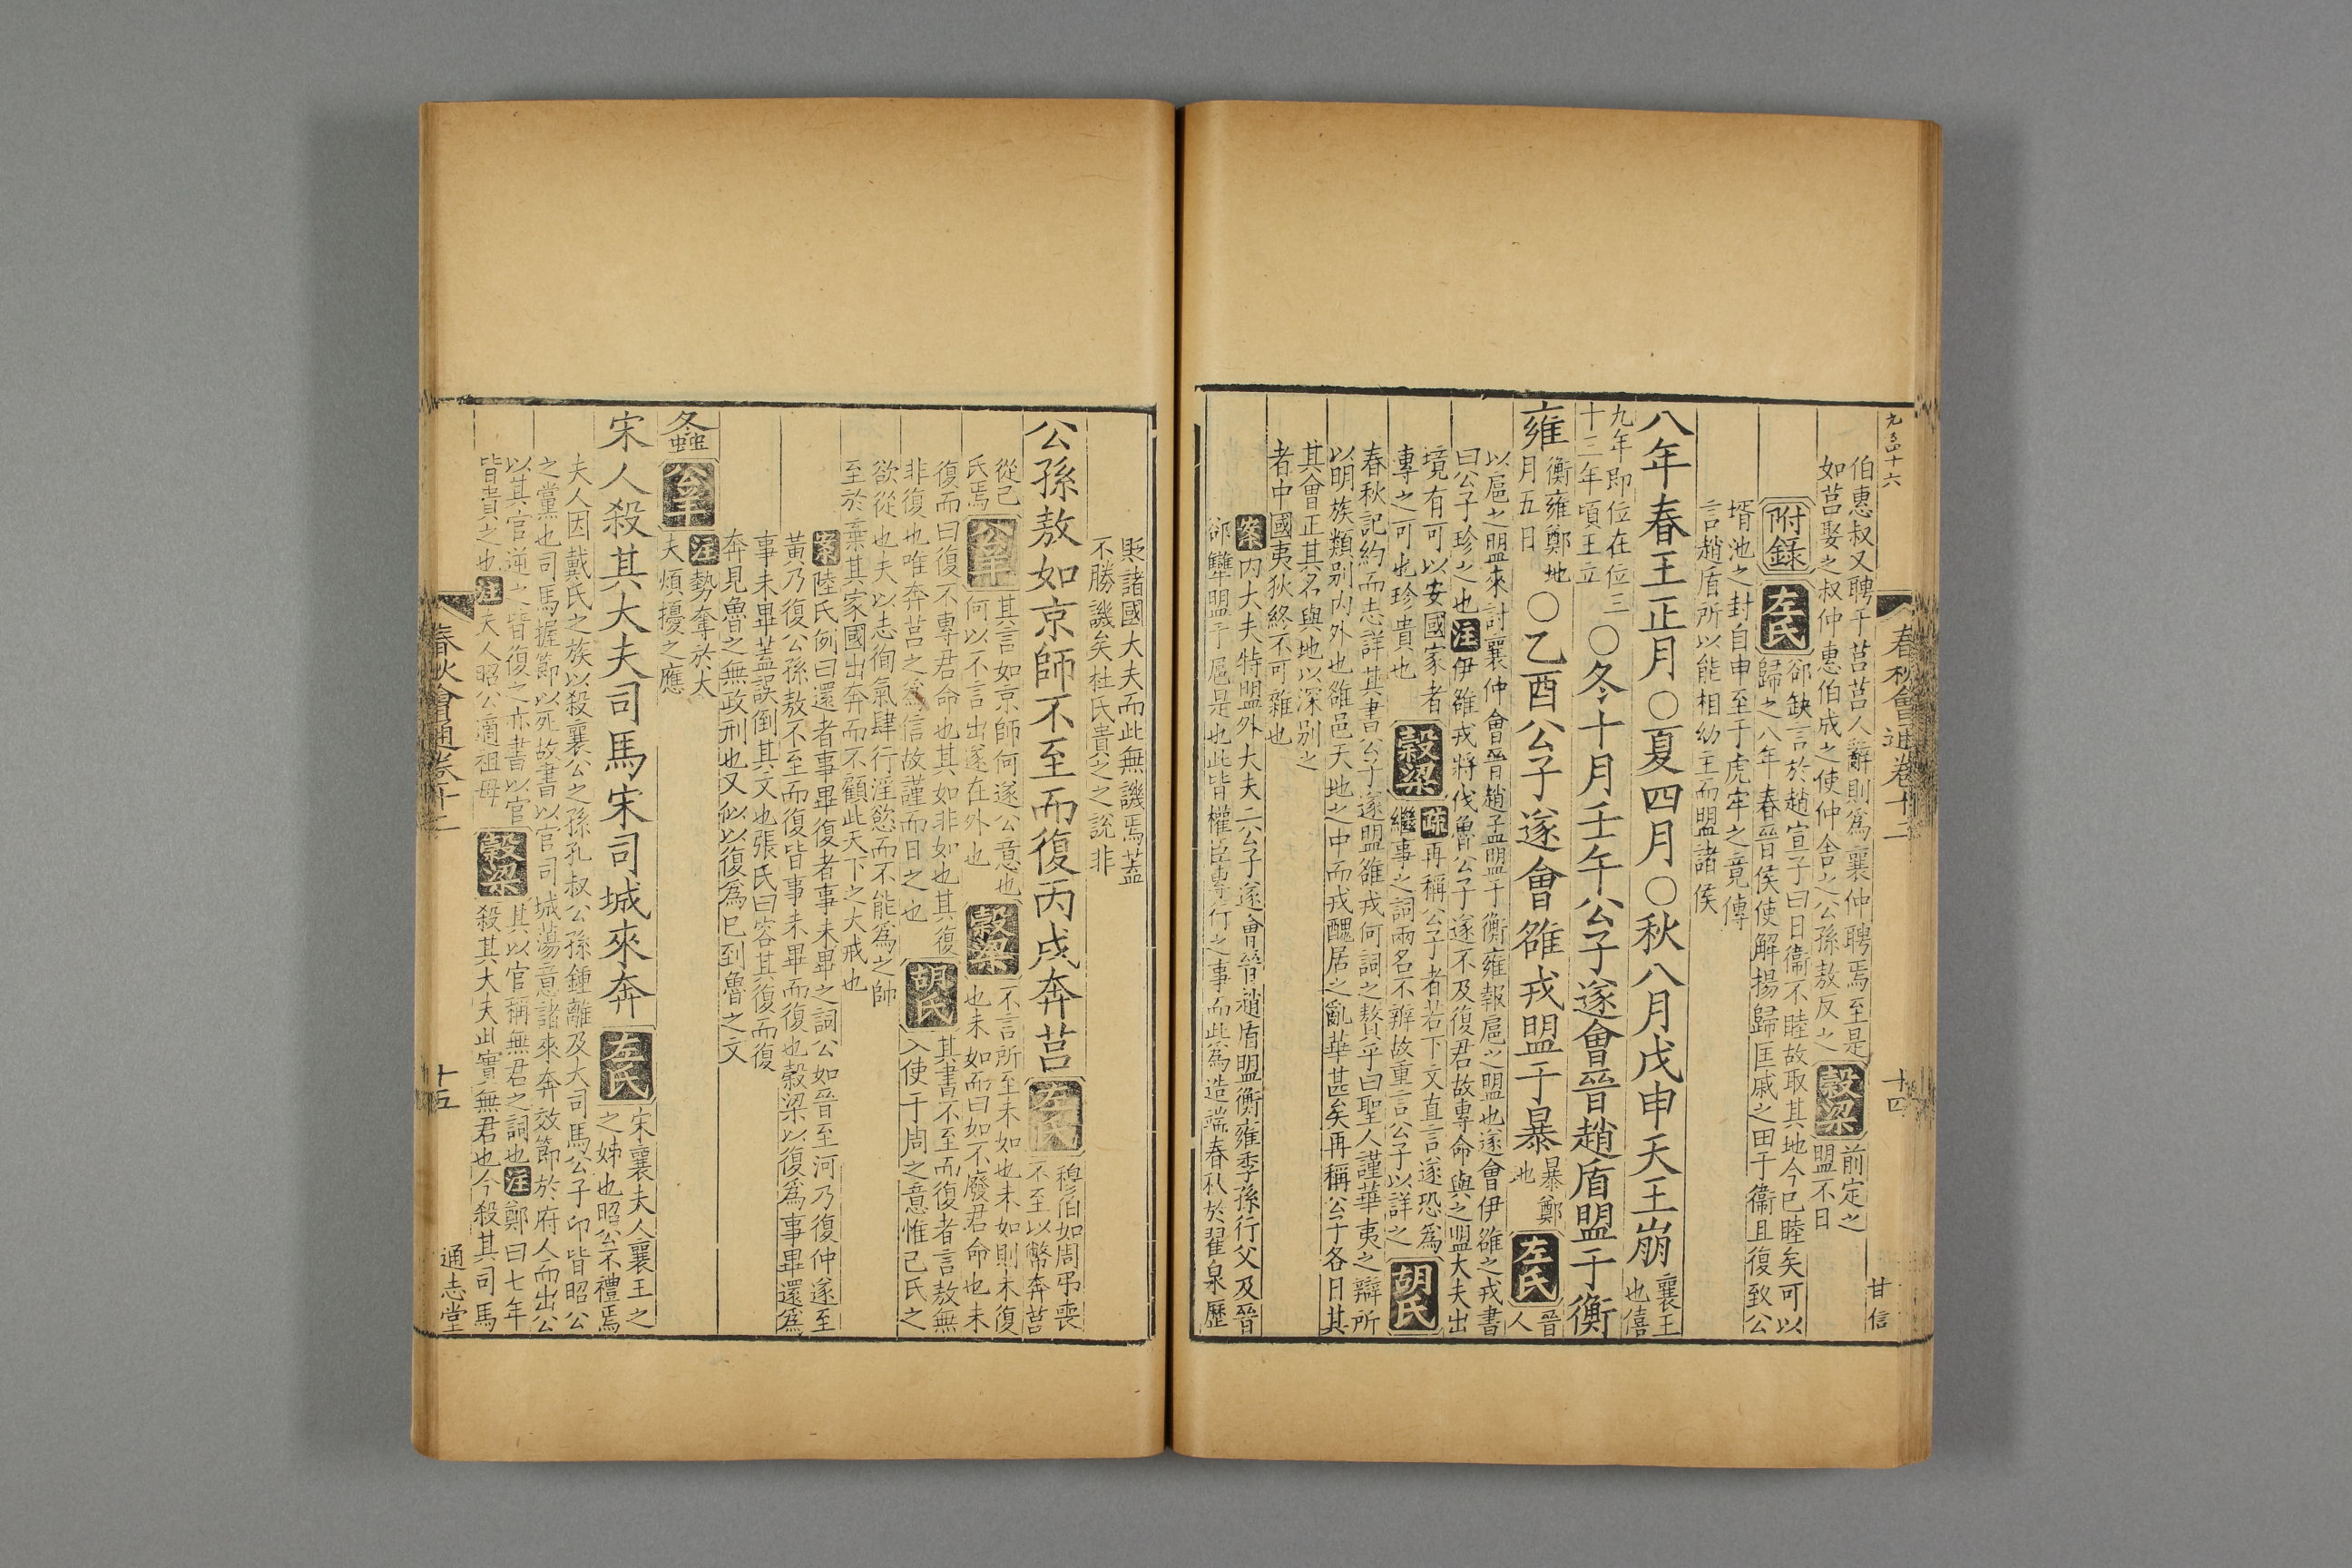 春秋會通卷十二
十四
甘信
伯惠叔又聘于莒莒人辭則爲襄仲聘焉至是
如莒娶之叔仲惠伯成之使仲舍之公孫敖反之
穀梁
前定之
盟不日
附錄
左氏
郤缺言於趙宣子曰日衞不睦故取其地今巳睦矣可以
歸之八年春晉侯使解揚歸匡戚之田于衞且復致公
壻池之封自申至于虎牢之竟傳
言趙盾所以能相幼主而盟諸侯
八年春王正月○夏四月○秋八月戊申天王崩
襄王
也僖
九年即位在位三
十三年頃王立
○冬十月壬午公子遂會晉趙盾盟于衡
雍
衡雍鄭地
月五日
○乙酉公子遂會雒戎盟于暴
暴鄭
也
左氏
晉
人
以扈之盟來討襄仲會晉趙孟盟于衡雍報扈之盟也遂會伊雒之戎書
曰公子珍之也注伊雒戎將伐魯公子遂不及復君故專命與之盟大夫出
境有可以安國家者
專之可也珍貴也
穀梁
疏再稱公子者若下文直言遂恐爲
繼事之詞兩名不辨故重言公子以詳之
胡氏
春秋記約而志詳其書公子遂盟雒戎何詞之贅乎曰聖人謹華夷之辯所
以明族類别内外也雒邑天地之中而戎醜居之亂華甚矣再稱公子各日其
其會正其名與地以深别之
者中國夷狄終不可雜也
案内大夫特盟外大夫二公子遂會晉趙盾盟衡雍季孫行父及晉
郤犨盟于扈是也此皆權臣專行之事而此爲造端春秋於翟泉歷
貶諸國大夫而此無譏焉蓋
不勝譏矣杜氏貴之之說非
公孫敖如京師不至而復丙戌奔莒
左氏
穆伯如周弔喪
不至以幣奔莒
從己
氏焉
公羊
其言如京師何遂公意也
何以不言出遂在外也
穀梁
不言所至未如也未如則未復
也未如而曰如不廢君命也未
復而曰復不專君命也其如非如也其復
非復也唯奔莒之爲信故謹而日之也
胡氏
其書不至而復者言敖無
入使于周之意惟己氏之
欲從也夫以志徇氣肆行淫慾而不能爲之帥
至於棄其家國出奔而不顧此天下之大戒也
案陸氏例曰還者事畢復者事未畢之詞公如晉至河乃復仲遂至
黃乃復公孫敖不至而復皆事未畢而復也穀梁以復爲事畢還爲
事未畢蓋誤倒其文也張氏曰容其復而復
奔見魯之無政刑也又似以復爲已到魯之文
螽
公羊
注勢奪於大
夫煩擾之應
宋人殺其大夫司馬宋司城來奔
左氏
宋襄夫人襄王之
之姊也昭公不禮焉
夫人因戴氏之族以殺襄公之孫孔叔公孫鍾離及大司馬公子卬皆昭公
之黨也司馬握節以死故書以官司城蕩意諸來奔效節於府人而出公
以其官逆之皆復之亦書以官
皆貴之也注夫人昭公適祖母
穀梁
其以官稱無君之詞也注鄭曰七年
殺其大夫此實無君也今殺其司馬
春秋會通卷十二
十五
通志堂